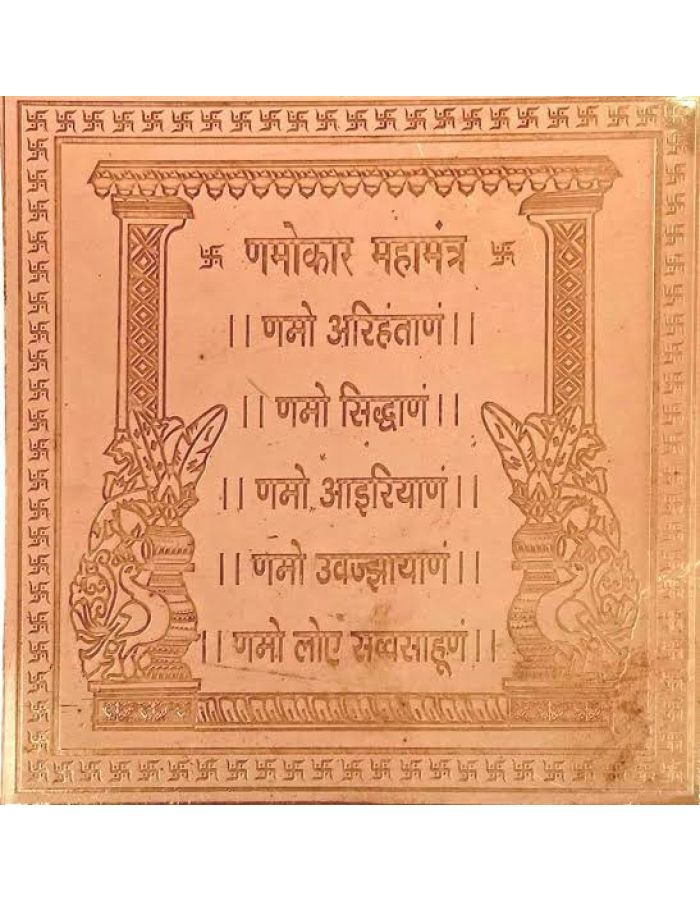 卐 णमोकार महामंत्र 卐
|| णमो अरिहंताणं ||
|| णमो सिद्धाणं ||
|| णमो आइरियाणं ||
|| णमो उवज्झायाणं ||
|| णमो लोए सव्वसाहूणं ||